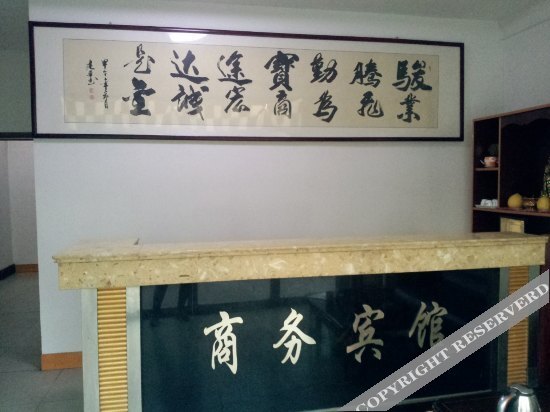 駿業騰飛勤為寶
商途宏達誠是金
商务宾馆
COPYRIGHT RESERVERD